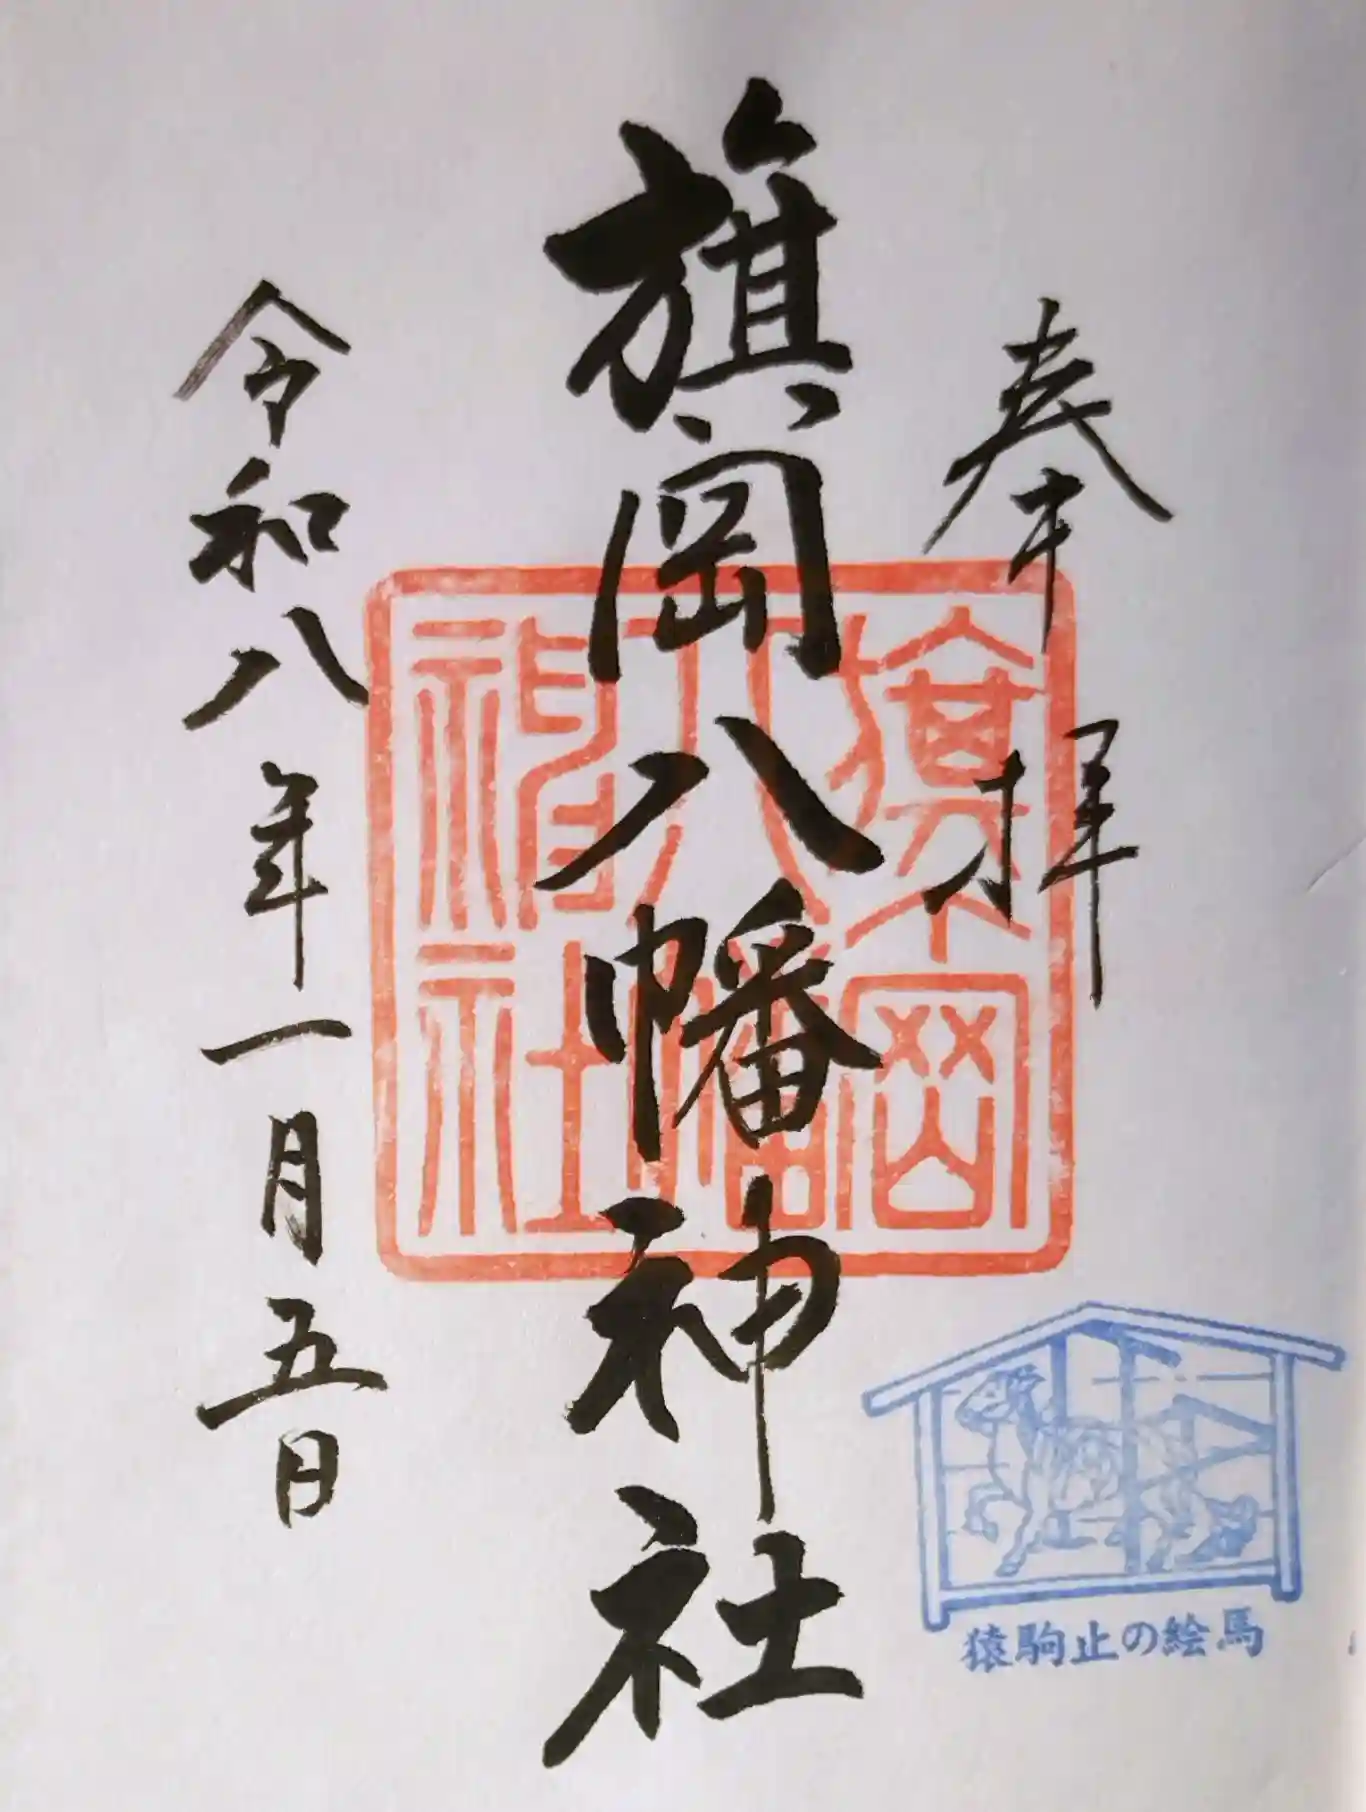 奉拝
旗岡八幡神社
旗岡
八幡
神社
令和八年一月五日
猿駒止の絵馬